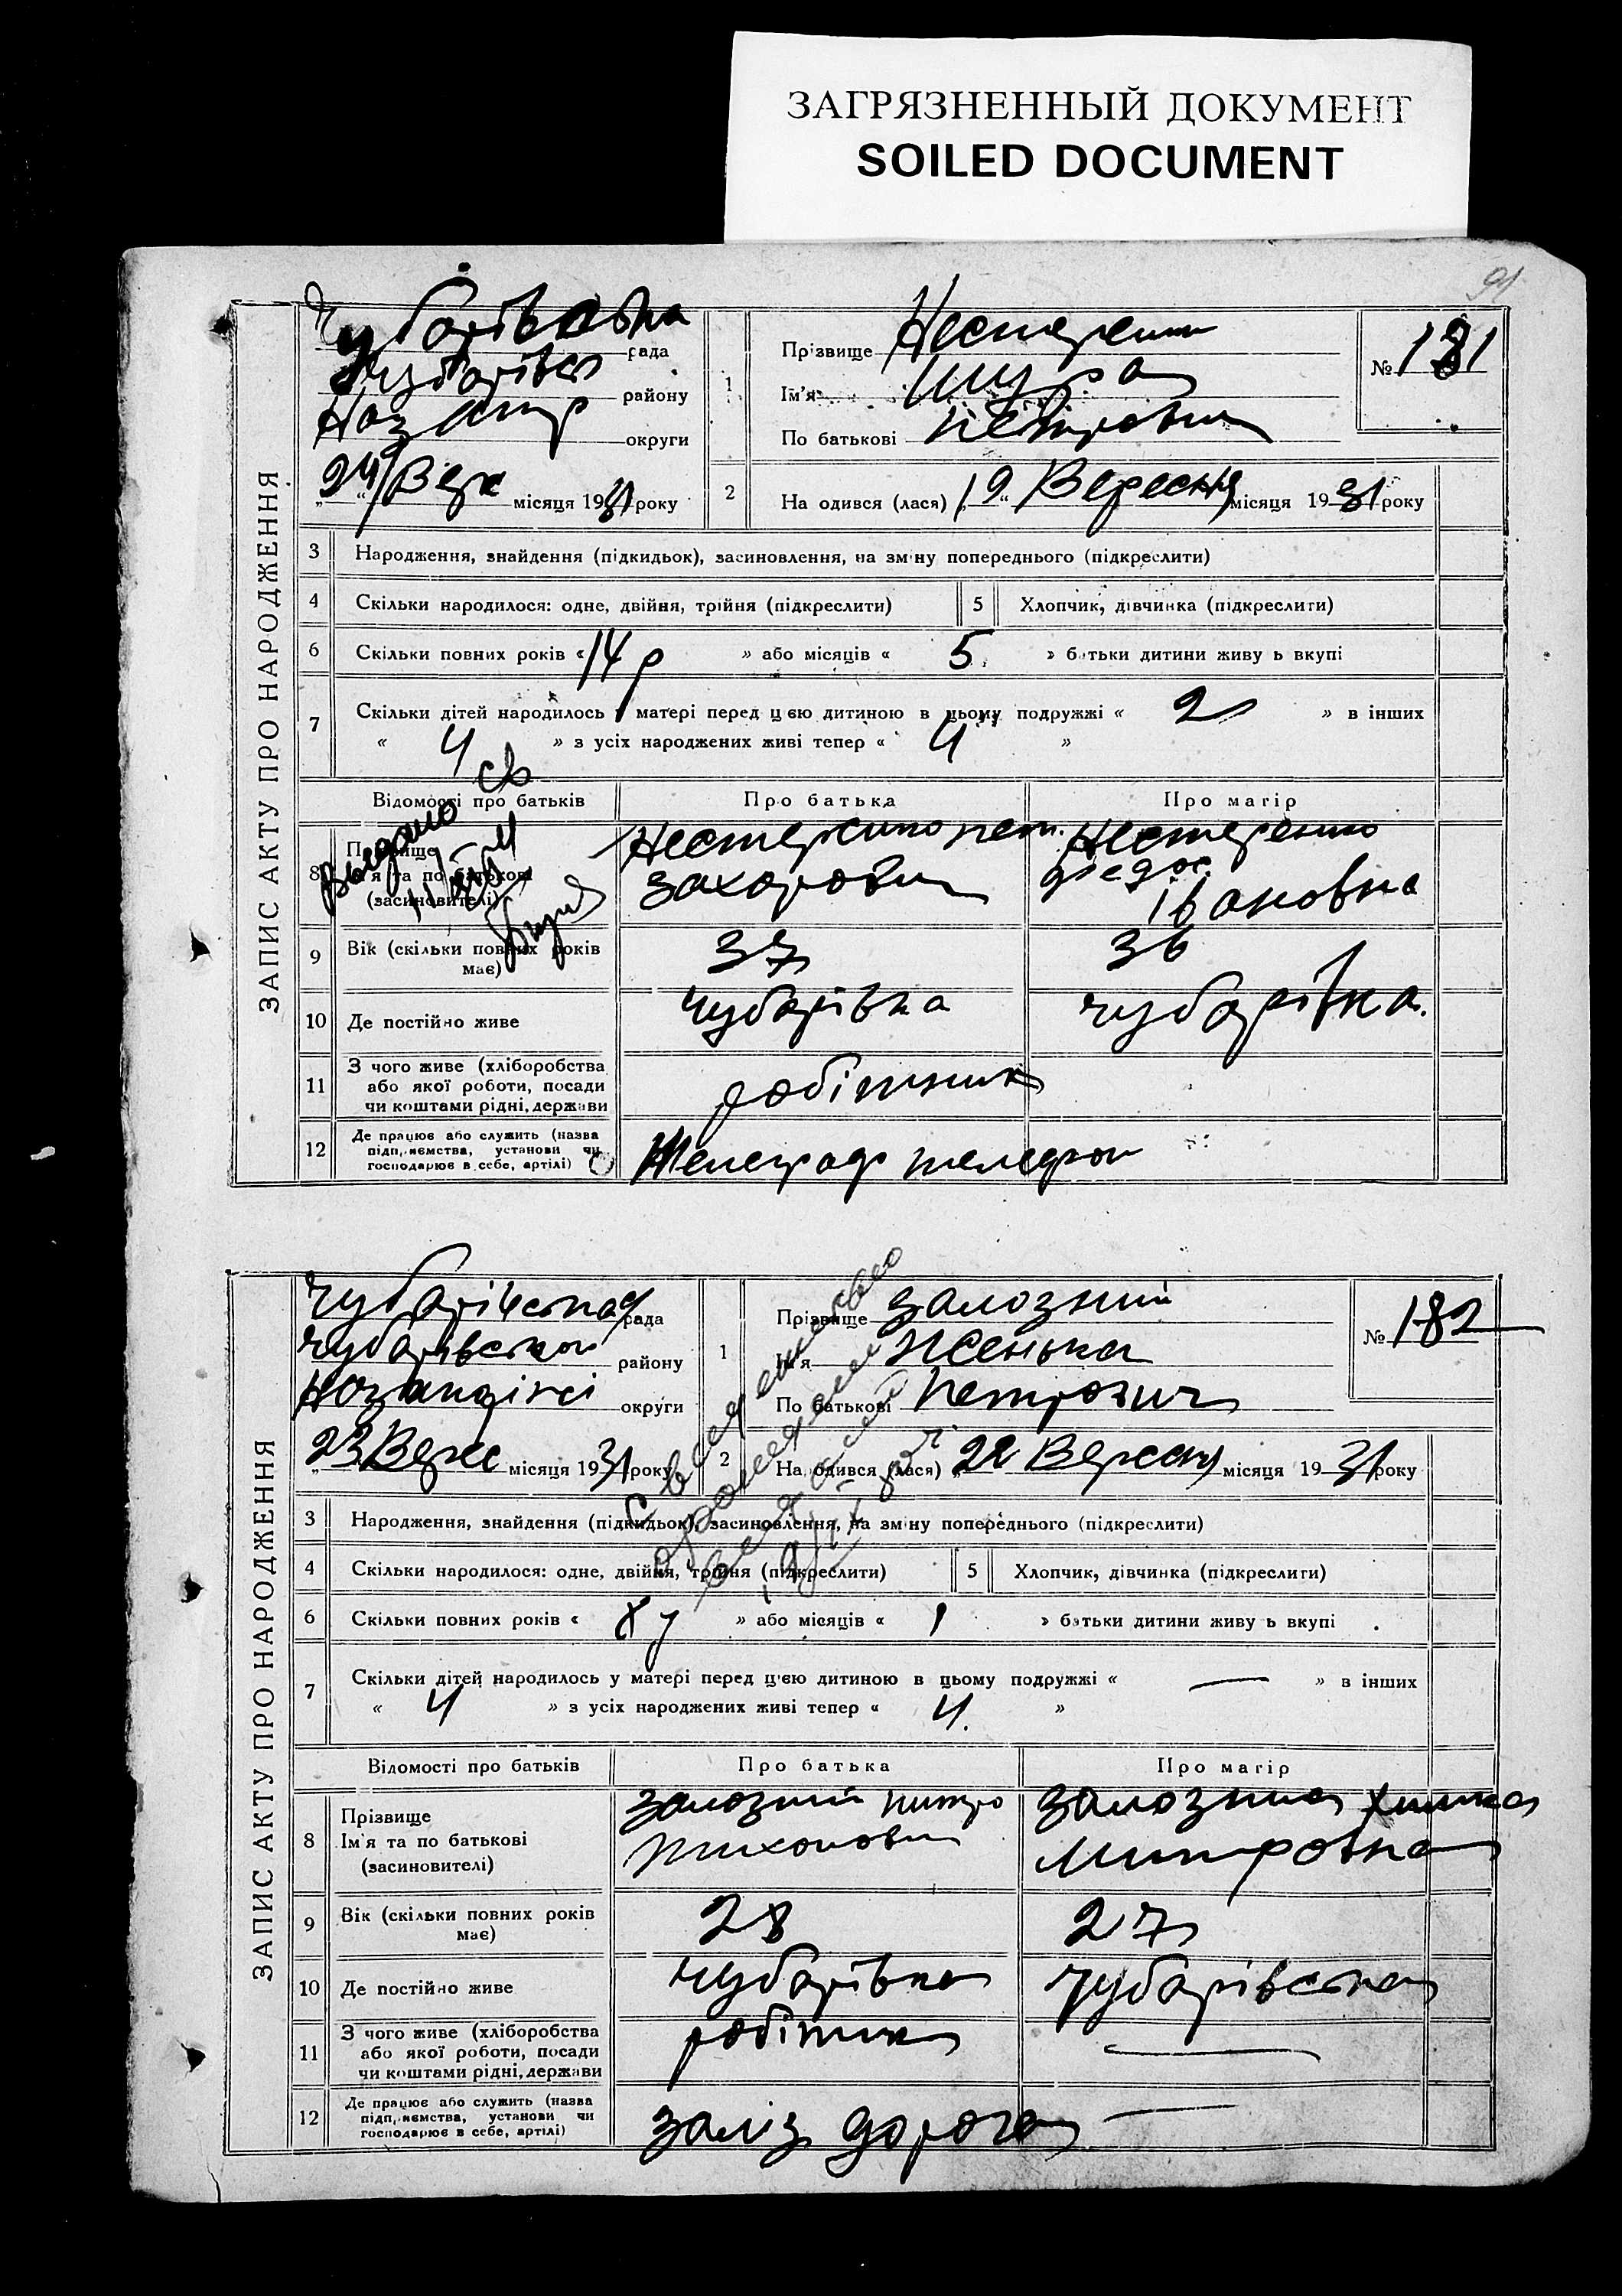 ЗАГРЯЗНЕННЫЙ ДОКУМЕНТ
SOILED DOCUMENT
91
ЗАПИС АКТУ ПРО НАРОДЖЕННЯ
Чубарівська рада
Чубарівсь району
округи
24 Верс місяця 1931 року
1 Прізвище Нестеренко
Ім'я Шура
По батькові Петрович
№ 181
2 На одився (лася) „19“ Вересня місяця 1931 року
3 Народження, знайдення (підкидьок), засиновлення, на зміну попереднього (підкреслити)
4 Скільки народилося: одне, двійня, трійня (підкреслити) 5 Хлопчик, дівчинка (підкреслити)
6 Скільки повних років « 14 р » або місяців « 5. » батьки дитини живу ь вкупі
7 Скільки дітей народилось у матері перед цією дитиною в цьому подружжі « 2 » в інших
« 4 » з усіх народжених живі тепер « 4 »
Відомості про батьків Про батька Про матір
Выдано св
8 Прізвище
Ім'я та по батькові
(засиновителі)
Нестеренко пет.
Захарович
Нестеренко
Федос.
Івановна
9 Вік (скільки повних років має) 37 36
10 Де постійно живе Чубарівка Чубарівка.
11 З чого живе (хліборобства
або якої роботи, посади
чи коштами рідні, держави
робітник
12 Де працює або служить (назва
підприємства, установи чи
господарює в себе, артілі)
Телеграф телефон
ЗАПИС АКТУ ПРО НАРОДЖЕННЯ
Чубарівська рада
Чубарівського району
округи
23 Верес місяця 1931 року
1 Прізвище Залозний
Ім'я
По батькові Петрович
№ 182
2 На одився (лася) „22 Вересня місяця 1931 року
Свидетельство
о рождении
3 Народження, знайдення (підкидьок), засиновлення, на зміну попереднього (підкреслити)
4 Скільки народилося: одне, двійня, трійня (підкреслити) 5 Хлопчик, дівчинка (підкреслити)
6 Скільки повних років « » або місяців « 1 » батьки дитини живу ь вкупі
7 Скільки дітей народилось у матері перед цією дитиною в цьому подружжі « — » в інших
« 4 » з усіх народжених живі тепер « 4. »
Відомості про батьків Про батька Про матір
8 Прізвище
Ім'я та по батькові
(засиновителі)
Залозний Питро
Тихонович
Залозна
Митровна
9 Вік (скільки повних років має) 28 27
10 Де постійно живе Чубарівка Чубарівська
11 З чого живе (хліборобства
або якої роботи, посади
чи коштами рідні, держави
робітник —
12 Де працює або служить (назва
підприємства, установи чи
господарює в себе, артілі)
заліз дорога —